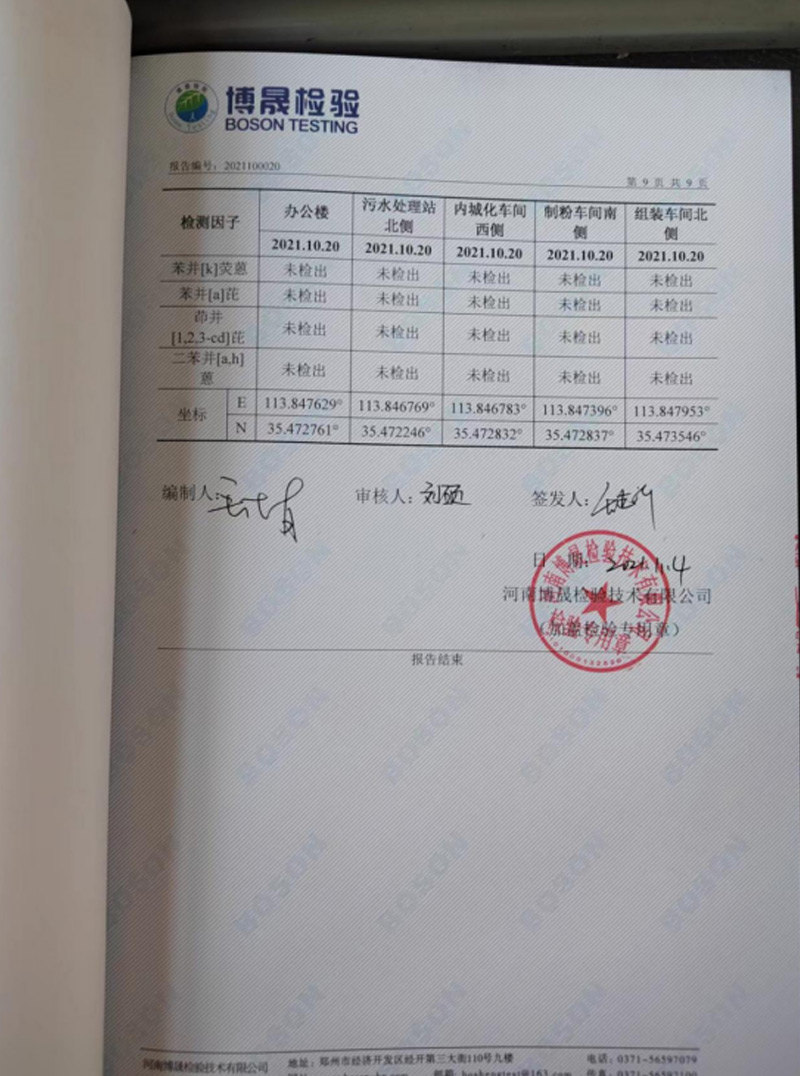 博晟检验
BOSON TESTING
报告编号：2021100020
第 9 页 共 9 页
检测因子 办公楼 污水处理站北侧 内城化车间西侧 制粉车间南侧 组装车间北侧
2021.10.20 2021.10.20 2021.10.20 2021.10.20 2021.10.20
苯并[k]荧蒽 未检出 未检出 未检出 未检出 未检出
苯并[a]芘 未检出 未检出 未检出 未检出 未检出
茚并[1,2,3-cd]芘 未检出 未检出 未检出 未检出 未检出
二苯并[a,h]蒽 未检出 未检出 未检出 未检出 未检出
坐标 E 113.847629° 113.846769° 113.846783° 113.847396° 113.847953°
N 35.472761° 35.472246° 35.472832° 35.472837° 35.473546°
编制人： 审核人：刘硕 签发人：
日 期：2021.11.4
河南博晟检验技术有限公司
（加盖检验专用章）
河南博晟检验技术有限公司
检验专用章
报告结束
河南博晟检验技术有限公司 地址：郑州市经济开发区经开第三大街110号九楼 电话：0371-56597079